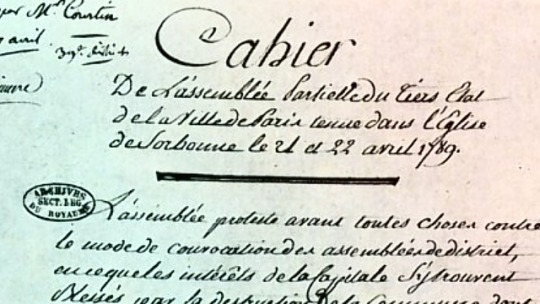 par Mr. Courtin
avril
39e. district
Cahier
De L'assemblée Partielle du Tiers Etat
de la Ville de Paris tenue dans l'Eglise
de Sorbonne le 21 et 22 avril 1789.
ARCHIVES
SECT. LEG.
DU ROYAUME
L'assemblée proteste avant toutes choses contre
le mode de convocation des assemblées de district,
en ce que les intérêts de la Capitale s'y trouvent
blessés par la destruction de la Commune dont